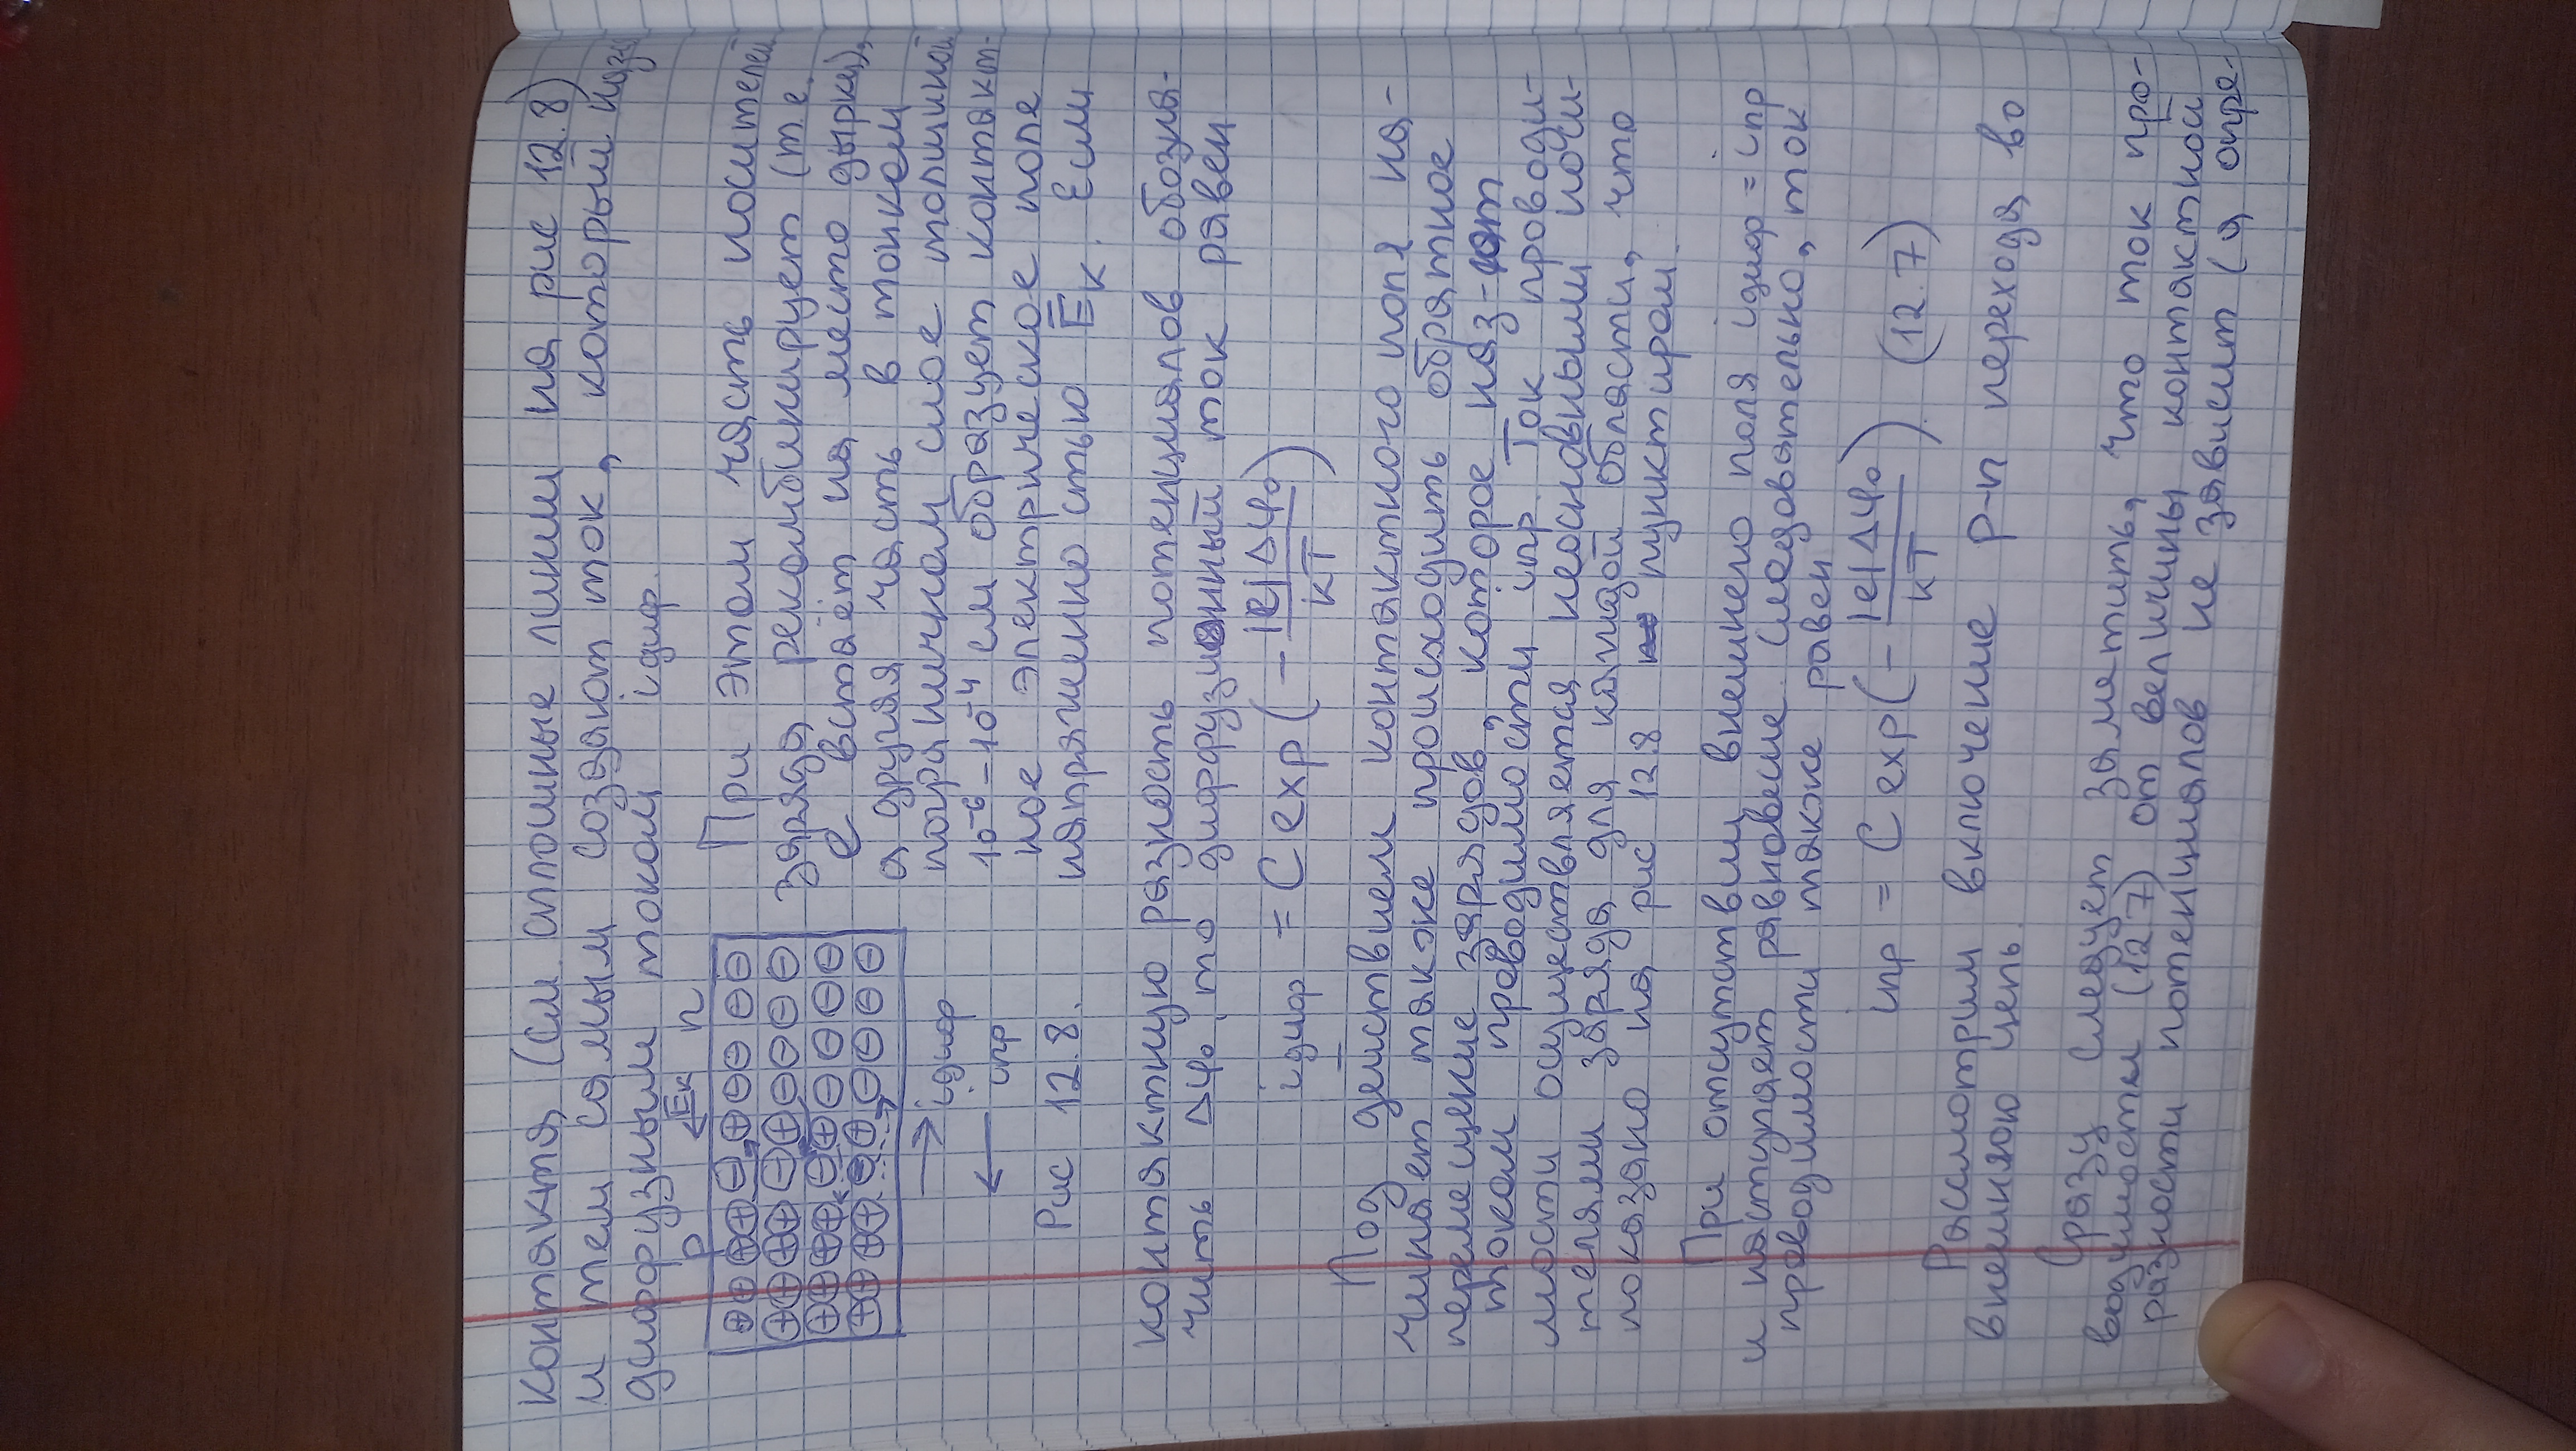 контакта (см. сплошные линии на рис 12.8)
и тем самым создают ток, который наз-ся
диффузным током iдиф.
p ← Ēк n
⊕ ⊕ ⊕ ⊕ ⊖ ⊕ ⊖ ⊖ ⊖ ⊖
⊕ ⊕ ⊕ ⊕ ⊖ ⊕ ⊖ ⊖ ⊖ ⊖
⊕ ⊕ ⊕ ⊕ ⊖ ⊕ ⊖ ⊖ ⊖ ⊖
⊕ ⊕ ⊕ ⊕ ⊖ ⊕ ⊖ ⊖ ⊖ ⊖
→ iдиф
← iпр
Рис 12.8.
При этом часть носителей
заряда рекомбинирует (т.е.
e встаёт на место дырки),
а другая часть в тонком
пограничном слое толщиной
10⁻⁶ – 10⁻⁴ см образует контакт-
ное электрическое поле
напряженностью Ēк. Если
контактную разность потенциалов обозна-
чить Δφ₀, то диффузионный ток равен
iдиф = C exp(-|e|Δφ₀/кT)
Под действием контактного поля на-
чинает также происходить обратное
перемещение зарядов, которое наз-ют
током проводимости iпр. Ток проводи-
мости осуществляется неосновными носи-
телями заряда для каждой области, что
показано на рис 12.8 пунктиром.
При отсутствии внешнего поля iдиф = iпр
и наступает равновесие. Следовательно, ток
проводимости также равен
iпр = C exp(-|e|Δφ₀/кT). (12.7)
Рассмотрим включение p-n перехода во
внешнюю цепь.
Сразу следует заметить, что ток про-
водимости (12.7) от величины контактной
разности потенциалов не зависит (а опре-